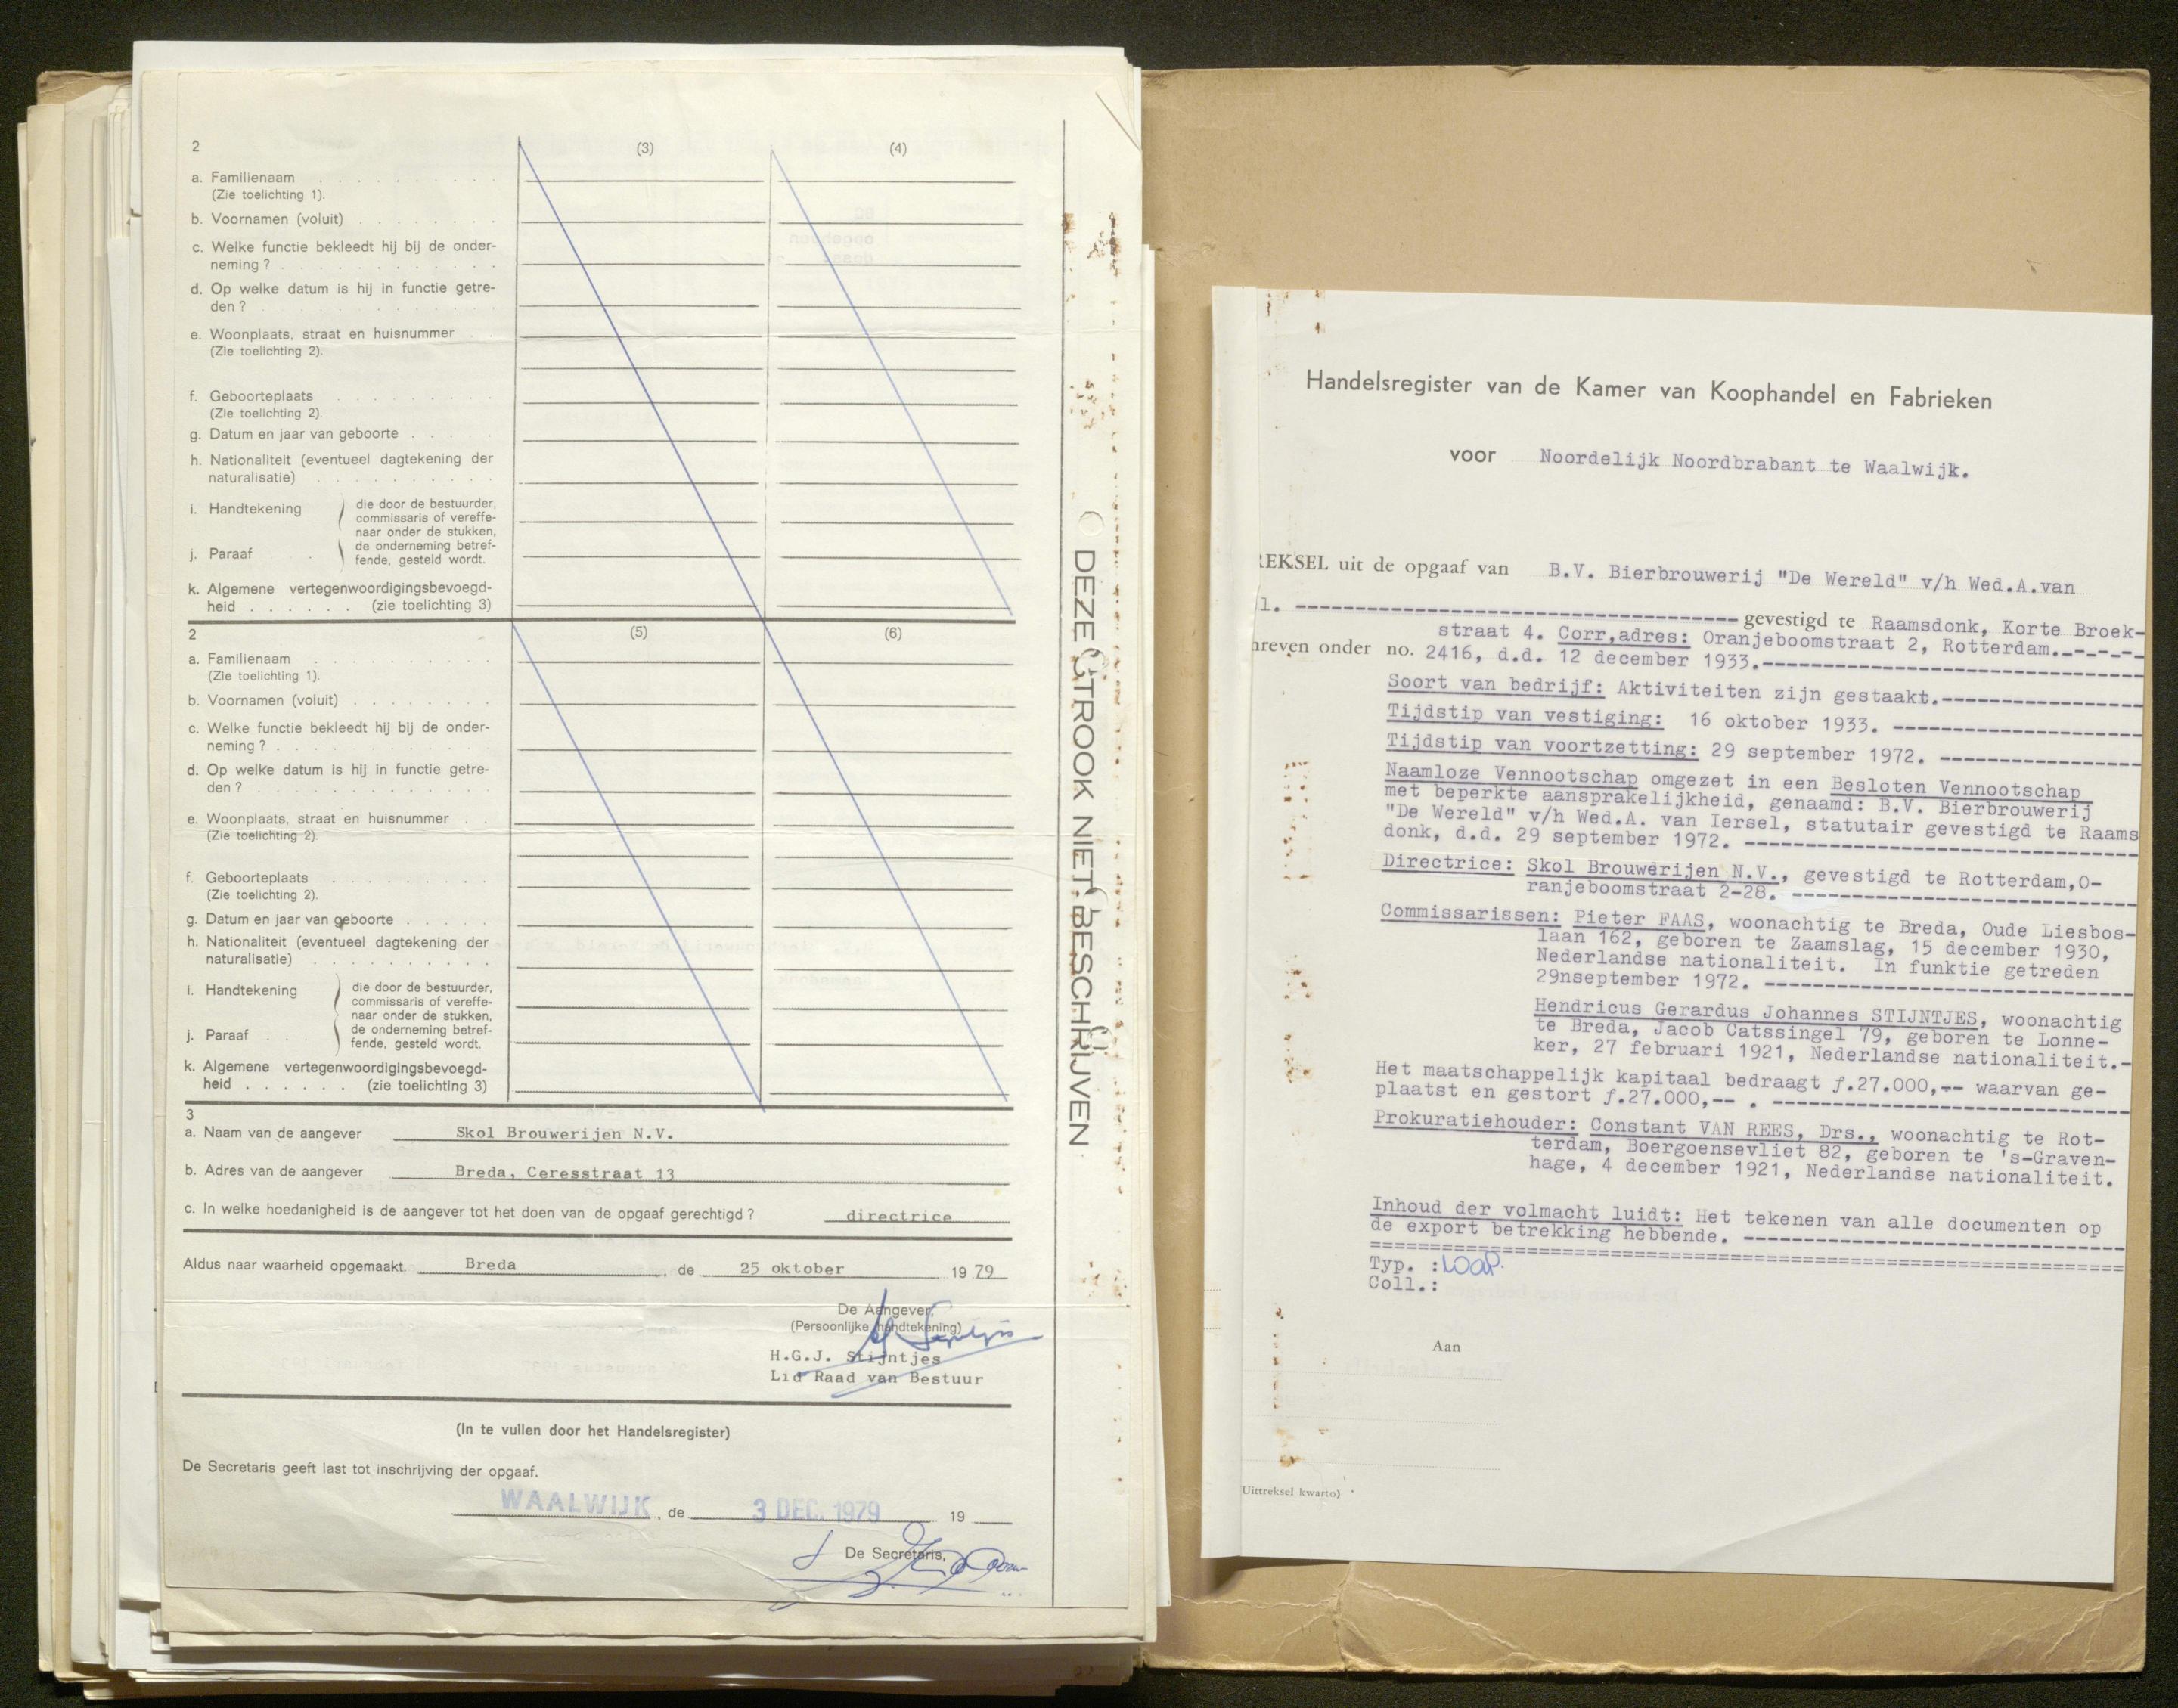 2
(3)
(4)
a. Familienaam
(Zie toelichting 1).
b. Voornamen (voluit)
c. Welke functie bekleedt hij bij de onder-
neming ?
d. Op welke datum is hij in functie getre-
den ?
e. Woonplaats, straat en huisnummer
(Zie toelichting 2).
f. Geboorteplaats
(Zie toelichting 2).
g. Datum en jaar van geboorte
h. Nationaliteit (eventueel dagtekening der
naturalisatie)
i. Handtekening
j. Paraaf
die door de bestuurder,
commissaris of vereffe-
naar onder de stukken,
de onderneming betref-
fende, gesteld wordt.
k. Algemene vertegenwoordigingsbevoegd-
heid . . . . . . (zie toelichting 3)
2
(5)
(6)
a. Familienaam
(Zie toelichting 1).
b. Voornamen (voluit)
c. Welke functie bekleedt hij bij de onder-
neming ?
d. Op welke datum is hij in functie getre-
den ?
e. Woonplaats, straat en huisnummer
(Zie toelichting 2).
f. Geboorteplaats
(Zie toelichting 2).
g. Datum en jaar van geboorte
h. Nationaliteit (eventueel dagtekening der
naturalisatie)
i. Handtekening
j. Paraaf
die door de bestuurder,
commissaris of vereffe-
naar onder de stukken,
de onderneming betref-
fende, gesteld wordt.
k. Algemene vertegenwoordigingsbevoegd-
heid . . . . . . (zie toelichting 3)
3
a. Naam van de aangever Skol Brouwerijen N.V.
b. Adres van de aangever Breda, Ceresstraat 13
c. In welke hoedanigheid is de aangever tot het doen van de opgaaf gerechtigd ? directrice
Aldus naar waarheid opgemaakt. Breda , de 25 oktober 19 79
De Aangever,
(Persoonlijke handtekening)
H.G.J. Stijntjes
Lid Raad van Bestuur
(In te vullen door het Handelsregister)
De Secretaris geeft last tot inschrijving der opgaaf.
WAALWIJK , de 3 DEC. 1979 19
De Secretaris,
DEZE STROOK NIET BESCHRIJVEN
Handelsregister van de Kamer van Koophandel en Fabrieken
voor Noordelijk Noordbrabant te Waalwijk.
REKSEL uit de opgaaf van B.V. Bierbrouwerij "De Wereld" v/h Wed.A.van
l. ---- gevestigd te Raamsdonk, Korte Broek-
straat 4. Corr,adres: Oranjeboomstraat 2, Rotterdam.-----
hreven onder no. 2416, d.d. 12 december 1933.----
Soort van bedrijf: Aktiviteiten zijn gestaakt.----
Tijdstip van vestiging: 16 oktober 1933. ----
Tijdstip van voortzetting: 29 september 1972. ----
Naamloze Vennootschap omgezet in een Besloten Vennootschap
met beperkte aansprakelijkheid, genaamd: B.V. Bierbrouwerij
"De Wereld" v/h Wed.A. van Iersel, statutair gevestigd te Raams
donk, d.d. 29 september 1972. ----
Directrice: Skol Brouwerijen N.V., gevestigd te Rotterdam,O-
ranjeboomstraat 2-28. ----
Commissarissen: Pieter FAAS, woonachtig te Breda, Oude Liesbos-
laan 162, geboren te Zaamslag, 15 december 1930,
Nederlandse nationaliteit. In funktie getreden
29nseptember 1972. ----
Hendricus Gerardus Johannes STIJNTJES, woonachtig
te Breda, Jacob Catssingel 79, geboren te Lonne-
ker, 27 februari 1921, Nederlandse nationaliteit.-
Het maatschappelijk kapitaal bedraagt ƒ.27.000,-- waarvan ge-
plaatst en gestort ƒ.27.000,-- . ----
Prokuratiehouder: Constant VAN REES, Drs., woonachtig te Rot-
terdam, Boergoensevliet 82, geboren te 's-Graven-
hage, 4 december 1921, Nederlandse nationaliteit.
Inhoud der volmacht luidt: Het tekenen van alle documenten op
de export betrekking hebbende. ----
====
Typ. :
Coll.:
Aan
Uittreksel kwarto)